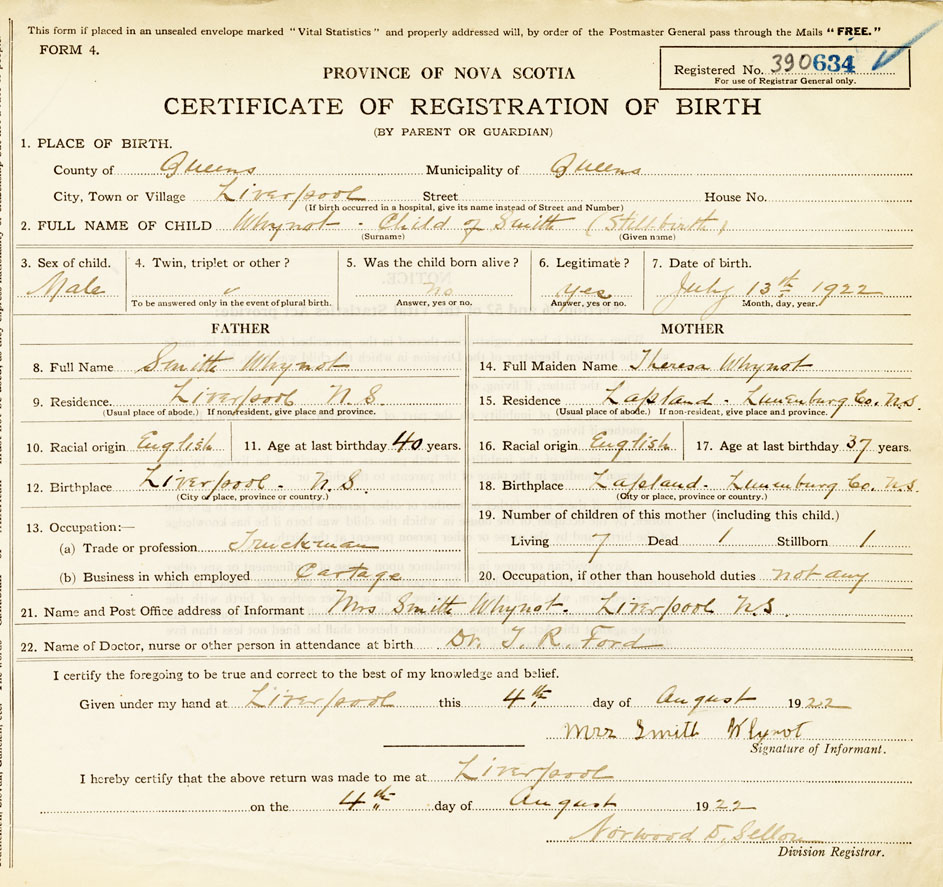 This form if placed in an unsealed envelope marked "Vital Statistics" and properly addressed will, by order of the Postmaster General pass through the Mails "FREE."
FORM 4.
Registered No. 390634
For use of Registrar General only.
PROVINCE OF NOVA SCOTIA
CERTIFICATE OF REGISTRATION OF BIRTH
(BY PARENT OR GUARDIAN)
1. PLACE OF BIRTH.
County of Queens Municipality of Queens
City, Town or Village Liverpool Street House No.
(If birth occurred in a hospital, give its name instead of Street and Number)
2. FULL NAME OF CHILD Whynot - Child of Smith (Stillbirth)
(Surname) (Given name)
3. Sex of child. 4. Twin, triplet or other? 5. Was the child born alive? 6. Legitimate? 7. Date of birth.
Male no yes July 13th 1922
To be answered only in the event of plural birth. Answer, yes or no. Answer, yes or no. Month, day, year.
FATHER
8. Full Name Smith Whynot
9. Residence. Liverpool N.S.
(Usual place of abode.) If non-resident, give place and province.
10. Racial origin English 11. Age at last birthday 40 years.
12. Birthplace Liverpool - N.S.
(City or place, province or country.)
13. Occupation:—
(a) Trade or profession Truckman
(b) Business in which employed Cartage
MOTHER
14. Full Maiden Name Theresa Whynot
15. Residence Lapland - Lunenburg Co. N.S.
(Usual place of abode.) If non-resident, give place and province.
16. Racial origin English 17. Age at last birthday 37 years.
18. Birthplace Lapland - Lunenburg Co. N.S.
(City or place, province or country.)
19. Number of children of this mother (including this child.)
Living 7 Dead 1 Stillborn 1
20. Occupation, if other than household duties not any
21. Name and Post Office address of Informant Mrs Smith Whynot - Liverpool N.S.
22. Name of Doctor, nurse or other person in attendance at birth Dr. J. R. Ford
I certify the foregoing to be true and correct to the best of my knowledge and belief.
Given under my hand at Liverpool this 4th day of August 1922
Mrs Smith Whynot
Signature of Informant.
I hereby certify that the above return was made to me at Liverpool
on the 4th day of August 1922
Norwood
Division Registrar.